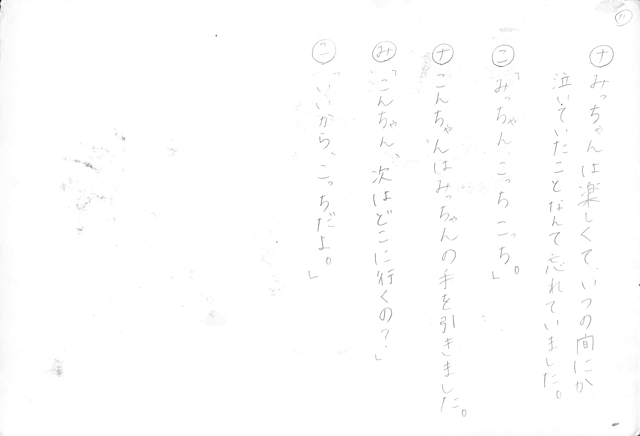 ナ みっちゃんは楽しくて、いつの間にか
泣いていたことなんて忘れていました。
こ「みっちゃん、こっちこっち。」
ナ こんちゃんはみっちゃんの手を引きました。
み「こんちゃん、次はどこに行くの?」
こ「いいから、こっちだよ。」